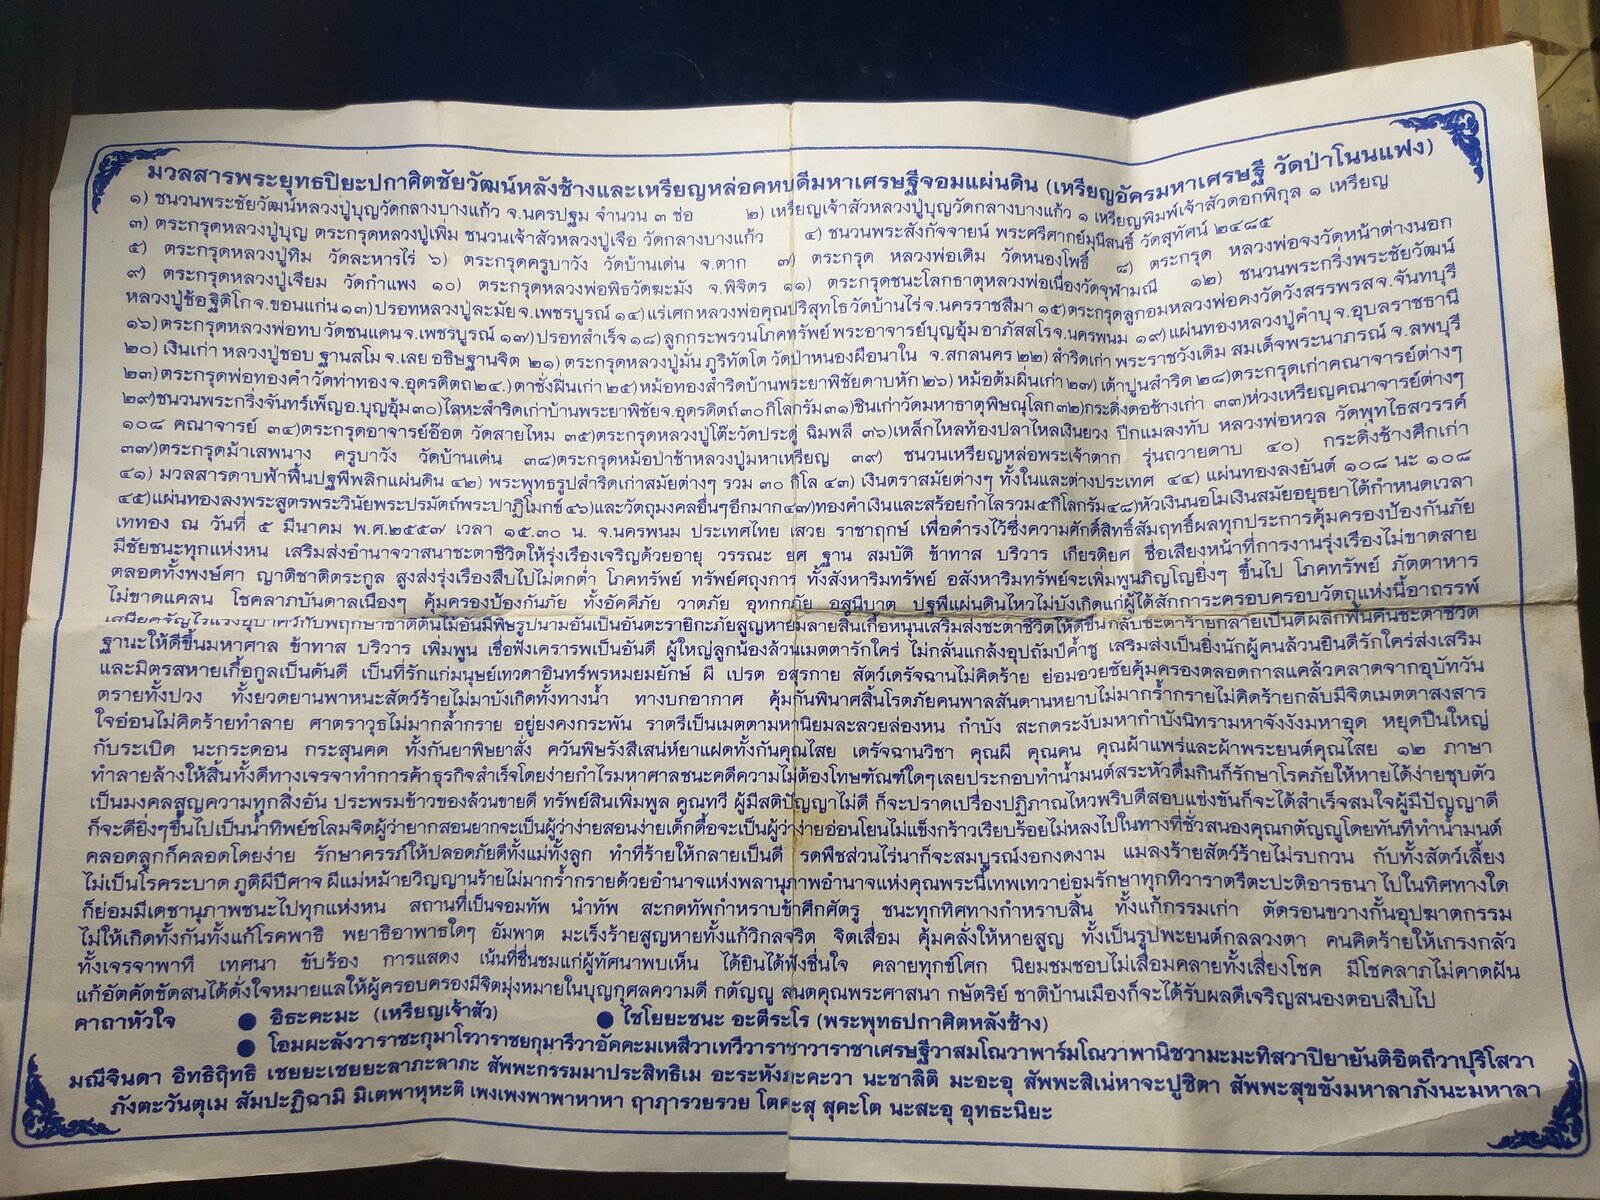 มวลสารพระยุทธปิยะปกาศิตชัยวัฒน์หลังช้างและเหรียญหล่อคหบดีมหาเศรษฐีจอมแผ่นดิน (เหรียญอัครมหาเศรษฐี วัดป่าโนนแฟง)
๑) ชนวนพระชัยวัฒน์หลวงปู่บุญวัดกลางบางแก้ว จ.นครปฐม จำนวน ๓ ช่อ ๒) เหรียญเจ้าสัวหลวงปู่บุญวัดกลางบางแก้ว ๑ เหรียญพิมพ์เจ้าสัวดอกพิกุล ๑ เหรียญ
๓) ตระกรุดหลวงปู่บุญ ตระกรุดหลวงปู่เพิ่ม ชนวนเจ้าสัวหลวงปู่เจือ วัดกลางบางแก้ว ๔) ชนวนพระสังกัจจายน์ พระศรีศากย์มุนีสนธิ์ วัดสุทัศน์ ๒๔๘๕
๕) ตระกรุดหลวงปู่ทิม วัดละหารไร่ ๖) ตระกรุดครูบาวัง วัดบ้านเด่น จ.ตาก ๗) ตระกรุด หลวงพ่อเดิม วัดหนองโพธิ์ ๘) ตระกรุด หลวงพ่อจงวัดหน้าต่างนอก
๙) ตระกรุดหลวงปู่เจียม วัดกำแพง ๑๐) ตระกรุดหลวงพ่อพิธวัดฆะมัง จ.พิจิตร ๑๑) ตระกรุดชนะโลกธาตุหลวงพ่อเนื่องวัดจุฬามณี ๑๒) ชนวนพระกริ่งพระชัยวัฒน์
หลวงปู่ช้อฐิติโกจ.ขอนแก่น๑๓)ปรอทหลวงปู่ละมัยจ.เพชรบูรณ์ ๑๔)แร่เศกหลวงพ่อคูณปริสุทโธวัดบ้านไร่จ.นครราชสีมา ๑๕)ตระกรุดลูกอมหลวงพ่อคงวัดวังสรรพรสจ.จันทบุรี
๑๖)ตระกรุดหลวงพ่อทบวัดชนแดนจ.เพชรบูรณ์ ๑๗)ปรอทสำเร็จ๑๘)ลูกกระพรวนโภคทรัพย์พระอาจารย์บุญอุ้มอาภัสสโรจ.นครพนม ๑๙)แผ่นทองหลวงปู่คำบุจ.อุบลราชธานี
๒๐) เงินเก่า หลวงปู่ชอบ ฐานสโม จ.เลย อธิษฐานจิต ๒๑) ตระกรุดหลวงปู่มั่น ภูริทัตโต วัดป่าหนองผือนาใน จ.สกลนคร ๒๒) สำริดเก่า พระราชวังเดิม สมเด็จพระนาภรณ์ จ.ลพบุรี
๒๓)ตระกรุดพ่อทองคำวัดท่าทองจ.อุตรดิตถ๒๔.)ตาชั่งฝิ่นเก่า ๒๕)หม้อทองสำริดบ้านพระยาพิชัยดาบหัก ๒๖) หม้อต้มฝิ่นเก่า ๒๗)เต้าปูนสำริด ๒๘)ตระกรุดเก่าคณาจารย์ต่างๆ
๒๙)ชนวนพระกริ่งจันทร์เพ็ญอ.บุญอุ้ม๓๐)โลหะสำริดเก่าบ้านพระยาพิชัยจ.อุตรดิตถ์๓๐กิโลกรัม๓๑)ชินเก่าวัดมหาธาตุพิษณุโลก๓๒)กระดิ่งคอช้างเก่า ๓๓)ห่วงเหรียญคณาจารย์ต่างๆ
๑๐๘ คณาจารย์ ๓๔)ตระกรุดอาจารย์อ๊อต วัดสายไหม ๓๕)ตระกรุดหลวงปู่โต๊ะวัดประดู่ ฉิมพลี ๓๖)เหล็กไหลท้องปลาไหลเงินยวง ปีกแมลงทับ หลวงพ่อหวล วัดพุทไธสวรรค์
๓๗)ตระกรุดม้าเสพนาง ครูบาวัง วัดบ้านเด่น ๓๘)ตระกรุดหม้อป่าช้าหลวงปู่มหาเหรียญ ๓๙) ชนวนเหรียญหล่อพระเจ้าตาก รุ่นถวายดาบ ๔๐) กระดิ่งช้างศึกเก่า
๔๑) มวลสารดาบฟ้าฟื้นปฐพีพลิกแผ่นดิน ๔๒) พระพุทธรูปสำริดเก่าสมัยต่างๆ รวม ๓๐ กิโล ๔๓) เงินตราสมัยต่างๆ ทั้งในและต่างประเทศ ๔๔) แผ่นทองลงยันต์ ๑๐๘ นะ ๑๐๘
๔๕)แผ่นทองลงพระสูตรพระวินัยพระปรมัตถ์พระปาฏิโมกข์ ๔๖)และวัตถุมงคลอื่นๆอีกมาก๔๗)ทองคำเงินและสร้อยกำไลรวม๕กิโลกรัม๔๘)หัวเงินนอโมเงินสมัยอยุธยาได้กำหนดเวลา
เททอง ณ วันที่ ๕ มีนาคม พ.ศ.๒๕๕๗ เวลา ๑๕.๓๐ น. จ.นครพนม ประเทศไทย เสวย ราชาฤกษ์ เพื่อดำรงไว้ซึ่งความศักดิ์สิทธิ์สัมฤทธิ์ผลทุกประการคุ้มครองป้องกันภัย
มีชัยชนะทุกแห่งหน เสริมส่งอำนาจวาสนาชะตาชีวิตให้รุ่งเรืองเจริญด้วยอายุ วรรณะ ยศ ฐาน สมบัติ ข้าทาส บริวาร เกียรติยศ ชื่อเสียงหน้าที่การงานรุ่งเรืองไม่ขาดสาย
ตลอดทั้งพงษ์ศา ญาติชาติตระกูล สูงส่งรุ่งเรืองสืบไปไม่ตกต่ำ โภคทรัพย์ ทรัพย์ศฤงการ ทั้งสังหาริมทรัพย์ อสังหาริมทรัพย์จะเพิ่มพูนภิญโญยิ่งๆ ขึ้นไป โภคทรัพย์ ภัตตาหาร
ไม่ขาดแคลน โชคลาภบันดาลเนืองๆ คุ้มครองป้องกันภัย ทั้งอัคดีภัย วาตภัย อุทกภัย อสุนีบาต ปฐพีแผ่นดินไหวไม่บังเกิดแก่ผู้ได้สักการะครอบครอบวัตถุแห่งนี้อาถรรพ์
เสนียดจัญไรแรงอุบาศว์กับพฤกษาชาติต้นไม้อันมีพิษรูปนามอันเป็นอันตะรายิกะภัยสูญหายมลายสิ้นเกื้อหนุนเสริมส่งชะตาชีวิตให้ดีขึ้นกลับชะตาร้ายกลายเป็นดีผลิกฟื้นคืนชะตาชีวิต
ฐานะให้ดีขึ้นมหาศาล ข้าทาส บริวาร เพิ่มพูน เชื่อฟังเคารพเป็นอันดี ผู้ใหญ่ลูกน้องล้วนเมตตารักใคร่ ไม่กลั่นแกล้งอุปถัมป์ค้ำชู เสริมส่งเป็นยิ่งนักผู้คนล้วนยินดีรักใคร่ส่งเสริม
และมิตรสหายเกื้อกูลเป็นดันดี เป็นที่รักแก่มนุษย์เทวดาอินทร์พรหมยมยักษ์ ผี เปรต อสุรกาย สัตว์เดรัจฉานไม่คิดร้าย ย่อมอวยชัยคุ้มครองตลอดกาลแคล้วคลาดจากอุบัทวัน
ตรายทั้งปวง ทั้งยวดยานพาหนะสัตว์ร้ายไม่มาบังเกิดทั้งทางน้ำ ทางบกอากาศ คุ้มกันพินาศสิ้นโรตภัยคนพาลสันดานหยาบไม่มากร้ำกรายไม่คิดร้ายกลับมีจิตเมตตาสงสาร
ใจอ่อนไม่คิดร้ายทำลาย ศาตราวุธไม่มากล้ำกราย อยู่ยงคงกระพัน ราตรีเป็นเมตตามหานิยมละลวยล่องหน กำบัง สะกดระงับมหากำบังนิทรามหาจังงังมหาอุด หยุดปืนใหญ่
กับระเบิด นะกระดอน กระสุนคด ทั้งกันยาพิษยาสั่ง ควันพิษรังสีเสน่ห์ยาแฝดทั้งกันคุณไสย เดรัจฉานวิชา คุณผี คุณคน คุณผ้าแพร่และผ้าพระยนต์คุณไสย ๑๒ ภาษา
ทำลายล้างให้สิ้นทั้งดีทางเจรจาทำการค้าธุรกิจสำเร็จโดยง่ายกำไรมหาศาลชนะคดีความไม่ต้องโทษฑัณฑ์ใดๆเลยประกอบทำน้ำมนต์สระหัวดื่มกินก็รักษาโรคภัยให้หายได้ง่ายชุบตัว
เป็นมงคลสูญความทุกสิ่งอัน ประพรมข้าวของล้วนขายดี ทรัพย์สินเพิ่มพูล คูณทวี ผู้มีสติปัญญาไม่ดี ก็จะปราดเปรื่องปฏิภาณไหวพริบดีสอบแข่งขันก็จะได้สำเร็จสมใจผู้มีปัญญาดี
ก็จะดียิ่งๆขึ้นไปเป็นน้ำทิพย์ชโลมจิตผู้ว่ายากสอนยากจะเป็นผู้ว่าง่ายสอนง่ายเด็กดื้อจะเป็นผู้ว่าง่ายอ่อนโยนไม่แข็งกร้าวเรียบร้อยไม่หลงไปในทางที่ชั่วสนองคุณกตัญญูโดยทันทีทำน้ำมนต์
คลอดลูกก็คลอดโดยง่าย รักษาครรภ์ให้ปลอดภัยดีทั้งแม่ทั้งลูก ทำที่ร้ายให้กลายเป็นดี รดพืชส่วนไร่นาก็จะสมบูรณ์งอกงดงาม แมลงร้ายสัตว์ร้ายไม่รบกวน กับทั้งสัตว์เลี้ยง
ไม่เป็นโรคระบาด ภูติผีปีศาจ ผีแม่หม้ายวิญญานร้ายไม่มากร้ำกรายด้วยอำนาจแห่งพลานุภาพอำนาจแห่งคุณพระนี้เทพเทวาย่อมรักษาทุกทิวาราตรีตะปะติอารธนา ไปในทิศทางใด
ก็ย่อมมีเดชานุภาพชนะไปทุกแห่งหน สถานที่เป็นจอมทัพ นำทัพ สะกดทัพกำหราบข้าศึกศัตรู ชนะทุกทิศทางกำหราบสิ้น ทั้งแก้กรรมเก่า ตัดรอนขวางกั้นอุปฆาตกรรม
ไม่ให้เกิดทั้งกันทั้งแก้โรคพาธิ พยาธิอาพาธใดๆ อัมพาต มะเร็งร้ายสูญหายทั้งแก้วิกลจริต จิตเสื่อม คุ้มคลั่งให้หายสูญ ทั้งเป็นรูปพะยนต์กลลวงตา คนคิดร้ายให้เกรงกลัว
ทั้งเจรจาพาที เทศนา ขับร้อง การแสดง เน้นที่ชื่นชมแก่ผู้ทัศนาพบเห็น ได้ยินได้ฟังชื่นใจ คลายทุกข์โศก นิยมชมชอบไม่เสื่อมคลายทั้งเสี่ยงโชค มีโชคลาภไม่คาดฝัน
แก้อัตคัตขัดสนได้ดั่งใจหมายแลให้ผู้ครอบครองมีจิตมุ่งหมายในบุญกุศลความดี กตัญญู สนตคุณพระศาสนา กษัตริย์ ชาติบ้านเมืองก็จะได้รับผลดีเจริญสนองตอบสืบไป
คาถาหัวใจ ● อิธะคะมะ (เหรียญเจ้าสัว) ● ไชโยยะชนะ อะตีระโร (พระพุทธปกาศิตหลังช้าง)
● โอมผะลังวาราชะกุมาโรวาราชยกุมารีวาอัคคะมเหสีวาเทวีวาราชาวาราชาเศรษฐีวาสมโณวาพาร์มโณวาพานิชวามะมะทิสวาปิยายันติอิตถีวาปุริโสวา
มณีจินดา อิทธิฤิทธิ เชยยะเชยยะลาภะลาภะ สัพพะกรรมมาประสิทธิเม อะระหังภะคะวา นะชาลิติ มะอะอุ สัพพะสิเน่หาจะปูชิตา สัพพะสุขขังมหาลาภังนะมหาลา
ภังตะวันตุเม สัมปะฏิฉามิ มิเตพาหุหะติ เพงเพงพาพาหาหา ฤาภารวยรวย โตคะสุ สุคะโต นะสะอุ อุทธะนิยะ